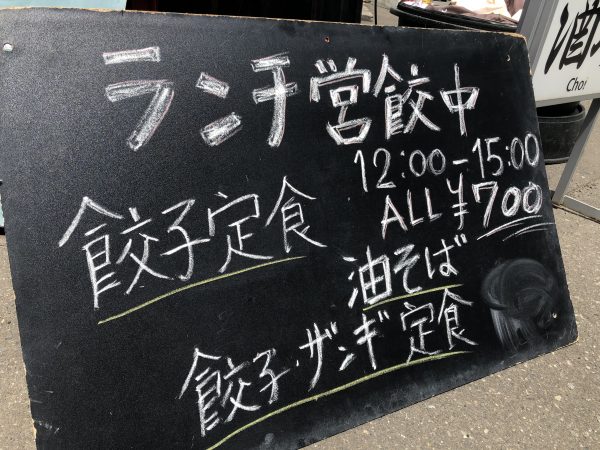 ランチ営餃中
12:00-15:00
ALL ¥700
餃子定食
油そば
餃子・ザンギ定食
酒
Cho!